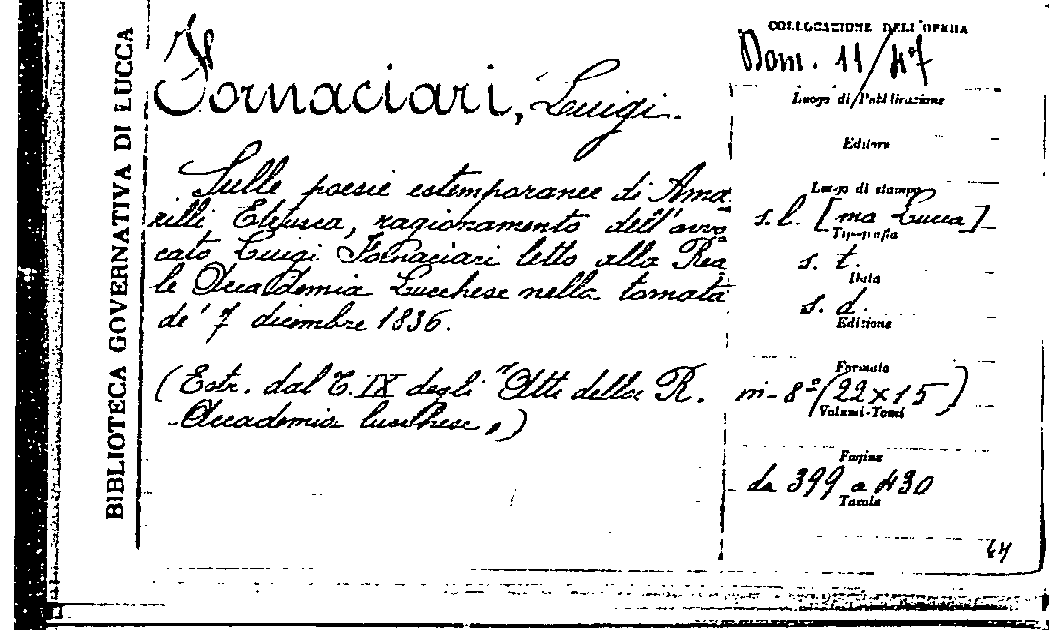 BIBLIOTECA GOVERNATIVA DI LUCCA
Fornaciari, Luigi.
Sulle poesie estemporanee di Ama
rilli Etrusca, ragionamento dell'avvo
cato Luigi Fornaciari letto alla Rea
le Accademia Lucchese nella tornata
de' 7 dicembre 1836.
(Estr. dal T. IX degli "Atti della R.
Accademia lucchese")
COLLOCAZIONE DELL'OPERA
Dom. 11/47
Luogo di Pubblicazione
Editore
Luogo di stampa
s. l. [ma Lucca]
Tipografia
s. t.
Data
s. d.
Edizione
Formato
in-8º (22x15)
Volumi-Tomi
Pagine
da 399 a 430
Tavole
64